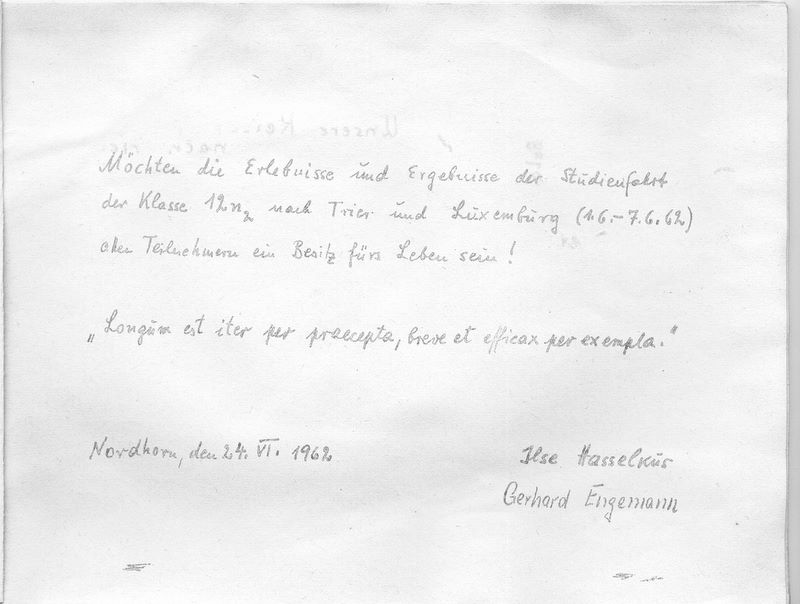 Möchten die Erlebnisse und Ergebnisse der Studienfahrt
der Klasse 12n₂ nach Trier und Luxemburg (1.6.–7.6.62)
allen Teilnehmern ein Besitz fürs Leben sein!
„Longum est iter per praecepta, breve et efficax per exempla."
Nordhorn, den 24. VI. 1962
Ilse Hasselkus
Gerhard Engemann